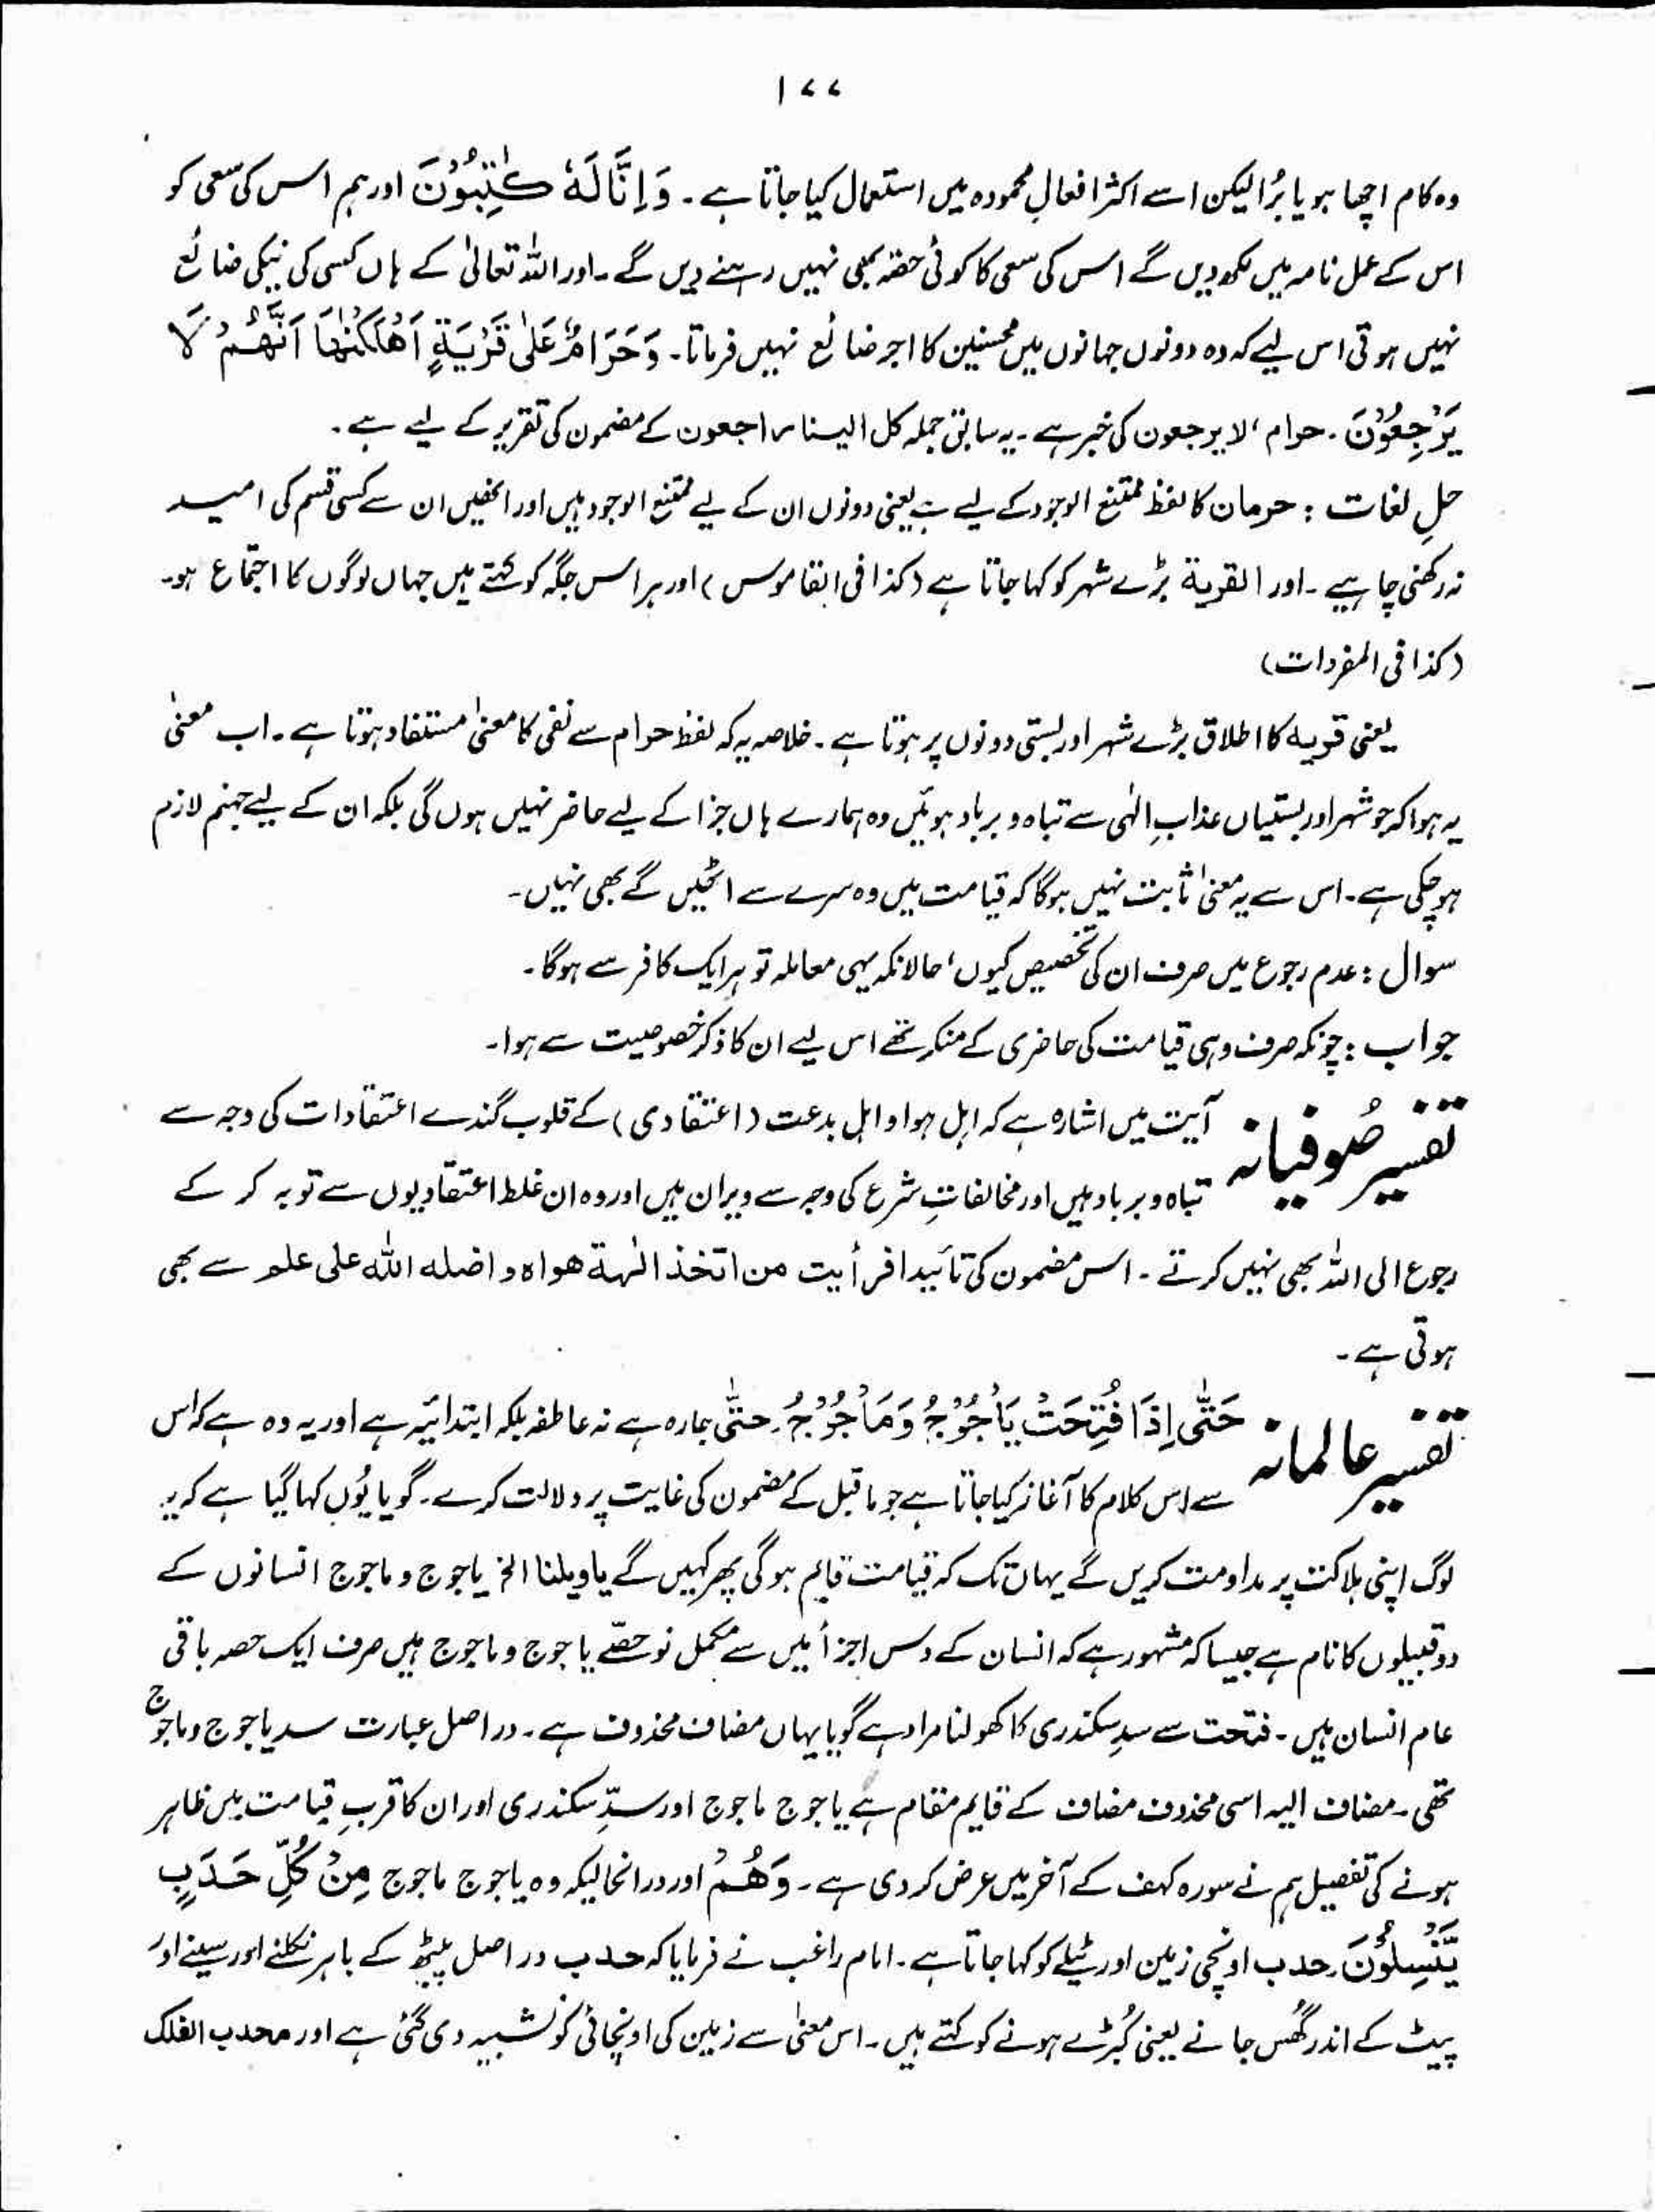 ۱۷۷
وہ کام اچھا ہو یا بُرا لیکن اسے اکثر افعالِ محمودہ میں استعمال کیا جاتا ہے ۔ وَاِنَّا لَہٗ کٰتِبُوْنَ اور ہم اس کی سعی کو
اس کے عمل نامہ میں لکھ دیں گے اس کی سعی کا کوئی حصّہ بھی نہیں رہنے دیں گے ۔ اور اللہ تعالیٰ کے ہاں کسی کی نیکی ضائع
نہیں ہوتی اس لیے کہ وہ دونوں جہانوں میں محسنین کا اجر ضائع نہیں فرماتا ۔ وَحَرَامٌ عَلٰی قَرْیَۃٍ اَھْلَکْنٰھَا اَنَّھُمْ لَا
یَرْجِعُوْنَ ۔ حرام ، لا یرجعون کی خبر ہے ۔ یہ سابق جملہ کل الینا راجعون کے مضمون کی تقریر کے لیے ہے ۔
حلِ لغات : حرمان کا لفظ ممتنع الوجود کے لیے ہے یعنی دونوں ان کے لیے ممتنع الوجود ہیں اور انھیں ان سے کسی قسم کی امید
نہ رکھنی چاہیے ۔ اور القریۃ بڑے شہر کو کہا جاتا ہے (کذا فی القاموس) اور ہر اس جگہ کو کہتے ہیں جہاں لوگوں کا اجتماع ہو ۔
(کذا فی المفردات)
یعنی قریہ کا اطلاق بڑے شہر اور بستی دونوں پر ہوتا ہے ۔ خلاصہ یہ کہ لفظ حرام سے نفی کا معنیٰ مستفاد ہوتا ہے ۔ اب معنیٰ
یہ ہوا کہ جو شہر اور بستیاں عذابِ الٰہی سے تباہ و برباد ہوئیں وہ ہمارے ہاں جزا کے لیے حاضر نہیں ہوں گی بلکہ ان کے لیے جہنم لازم
ہو چکی ہے ۔ اس سے یہ معنیٰ ثابت نہیں ہوگا کہ قیامت میں وہ سرے سے اٹھیں گے بھی نہیں ۔
سوال : عدم رجوع میں صرف ان کی تخصیص کیوں ، حالانکہ یہی معاملہ تو ہر ایک کافر سے ہوگا ۔
جواب : چونکہ صرف وہی قیامت کی حاضری کے منکر تھے اس لیے ان کا ذکر خصوصیت سے ہوا ۔
تفسیر صُوفیانہ آیت میں اشارہ ہے کہ اہل ہوا و اہل بدعت (اعتقادی) کے قلوب گندے اعتقادات کی وجہ سے
تباہ و برباد ہیں اور مخالفاتِ شرع کی وجہ سے ویران ہیں اور وہ ان غلط اعتقادیوں سے توبہ کر کے
رجوع الی اللہ بھی نہیں کرتے ۔ اس مضمون کی تائید افرأیت من اتخذ الٰہۃ ھواہ و اضلہ اللہ علی علم سے بھی
ہوتی ہے ۔
تفسیر عالمانہ حَتّٰی اِذَا فُتِحَتْ یَاْجُوْجُ وَمَاْجُوْجُ ۔ حتّٰی جارہ ہے نہ عاطفہ بلکہ ابتدائیہ ہے اور یہ وہ ہے کہ اس
سے اس کلام کا آغاز کیا جاتا ہے جو ماقبل کے مضمون کی غایت پر دلالت کرے ۔ گویا یُوں کہا گیا ہے کہ یہ
لوگ اپنی ہلاکت پر مداومت کریں گے یہاں تک کہ قیامت قایم ہوگی پھر کہیں گے یاویلنا الخ یاجوج و ماجوج انسانوں کے
دو قبیلوں کا نام ہے جیسا کہ مشہور ہے کہ انسان کے دس اجزأ میں سے مکمل نو حصّے یاجوج و ماجوج ہیں صرف ایک حصہ باقی
عام انسان ہیں ۔ فتحت سے سدِ سکندری کا کھولنا مراد ہے گویا یہاں مضاف محذوف ہے ۔ دراصل عبارت سد یاجوج وماجوج
تھی ۔ مضاف الیہ اسی محذوف مضاف کے قایم مقام ہے یاجوج ماجوج اور سدِّ سکندری اور ان کا قربِ قیامت میں ظاہر
ہونے کی تفصیل ہم نے سورہ کہف کے آخر میں عرض کر دی ہے ۔ وَھُمْ اور درانحالیکہ وہ یاجوج ماجوج مِنْ کُلِّ حَدَبٍ
یَّنْسِلُوْنَ ۔ حدب اونچی زمین اور ٹیلے کو کہا جاتا ہے ۔ امام راغب نے فرمایا کہ حدب دراصل پیٹھ کے باہر نکلنے اور سینے اور
پیٹ کے اندر گھُس جانے یعنی کُبڑے ہونے کو کہتے ہیں ۔ اس معنیٰ سے زمین کی اونچائی کو تشبیہ دی گئی ہے اور محدب الفلک